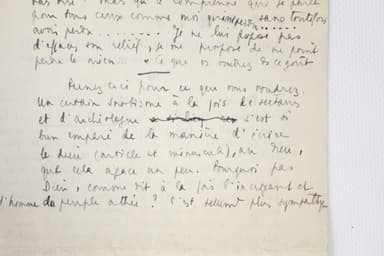 pas moi ? Mais qu'il comprenne que je parle
pour tous ceux comme moi sans toutefois
avoir perdu .......... Je ne lui pas
d'effacer son relief, je me propose de ne point
perdre le mien... " ce que vous voudrez
Prenez ceci pour ce que vous voudrez.
Un certain snobisme à la fois de sectaires
et d'archéologue s'est si
bien emparé de la manière d'écrire
le dieu (article et minuscule), un dieu,
que cela agace un peu. Pourquoi pas
Dieu, comme dit à la fois l'innocent et
l'homme du peuple athée ? C'est tellement plus sympathique